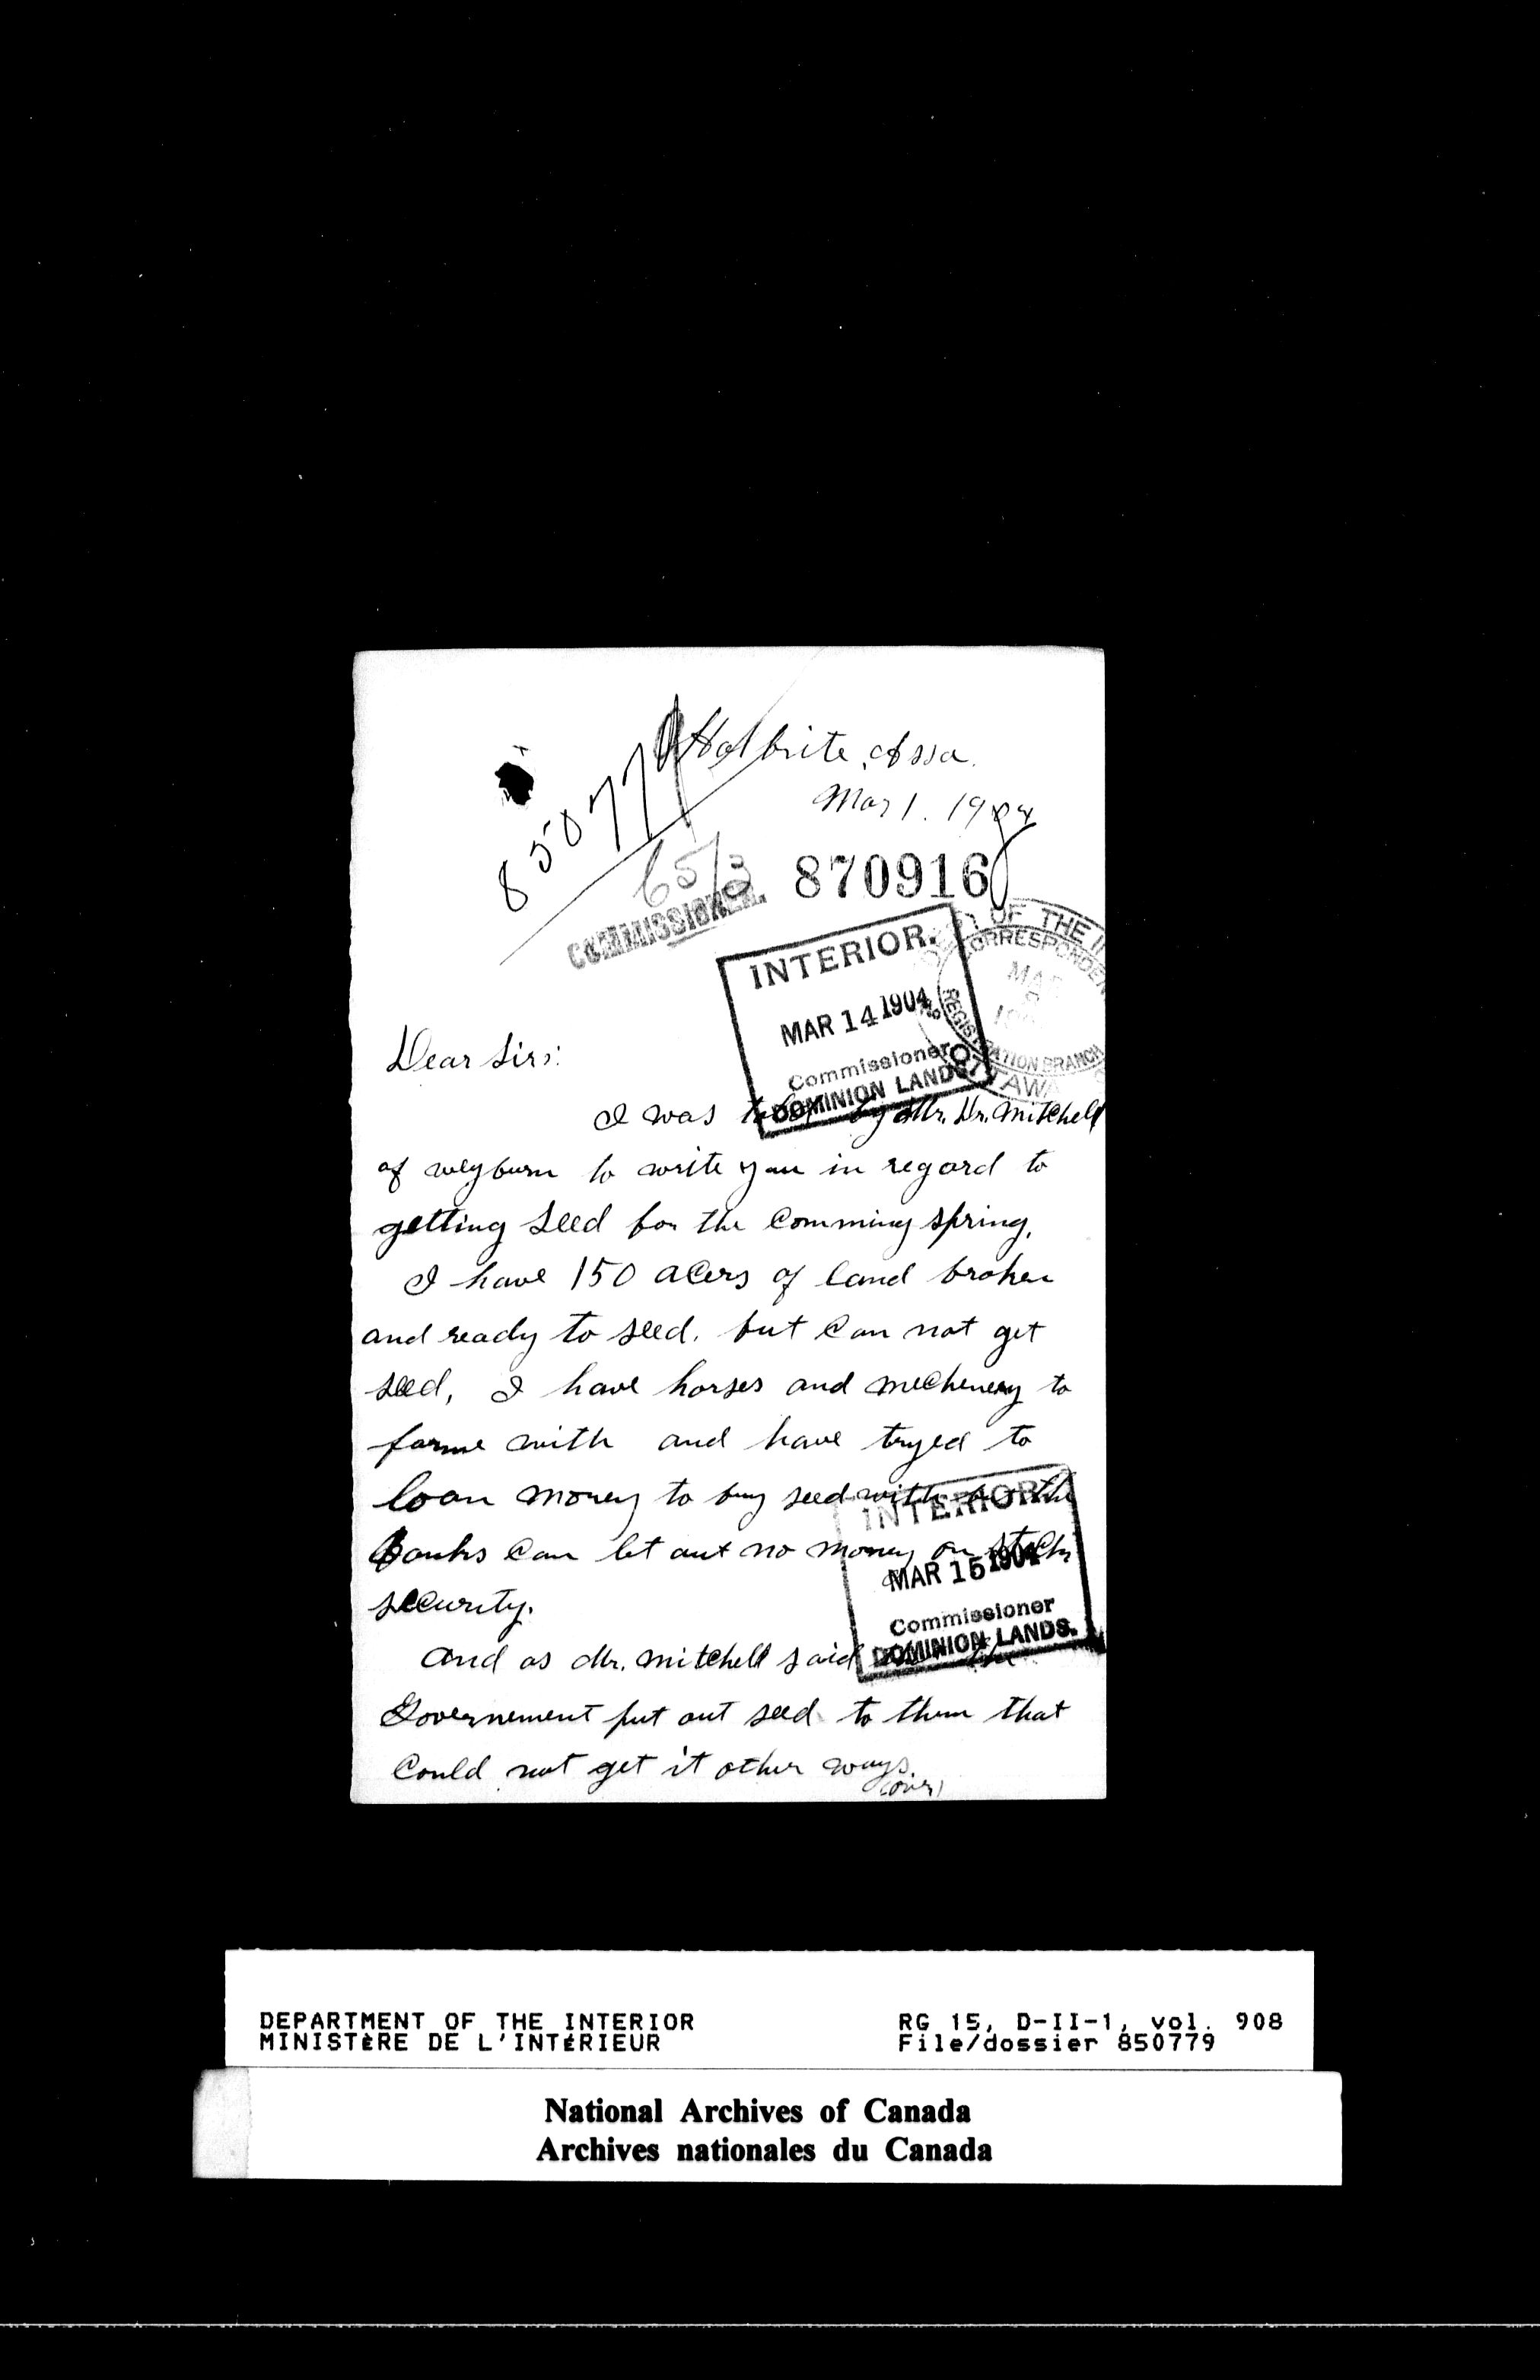 Halbrite, Assa.
Mar 1. 1904
850779
65/3
870916
COMMISSIONER.
INTERIOR.
MAR 14 1904
Commissioner
DOMINION LANDS
OF THE I
CORRESPONDEN
MAR
REGISTRATION BRANCH
OTTAWA
Dear Sirs:
I was by Mr. Dr. Mitchell
of weyburn to write you in regard to
getting seed for the comming spring.
I have 150 acers of land broken
and ready to seed. but can not get
seed, I have horses and mechenery to
farme with and have tryed to
loan money to buy seed with but the
banks can let out no money on such
security.
And as Mr. Mitchell said the
Governement put out seed to them that
could not get it other ways.
(over)
INTERIOR
MAR 15 1904
Commissioner
DOMINION LANDS.
DEPARTMENT OF THE INTERIOR
MINISTÈRE DE L'INTÉRIEUR
RG 15, D-II-1, vol. 908
File/dossier 850779
National Archives of Canada
Archives nationales du Canada